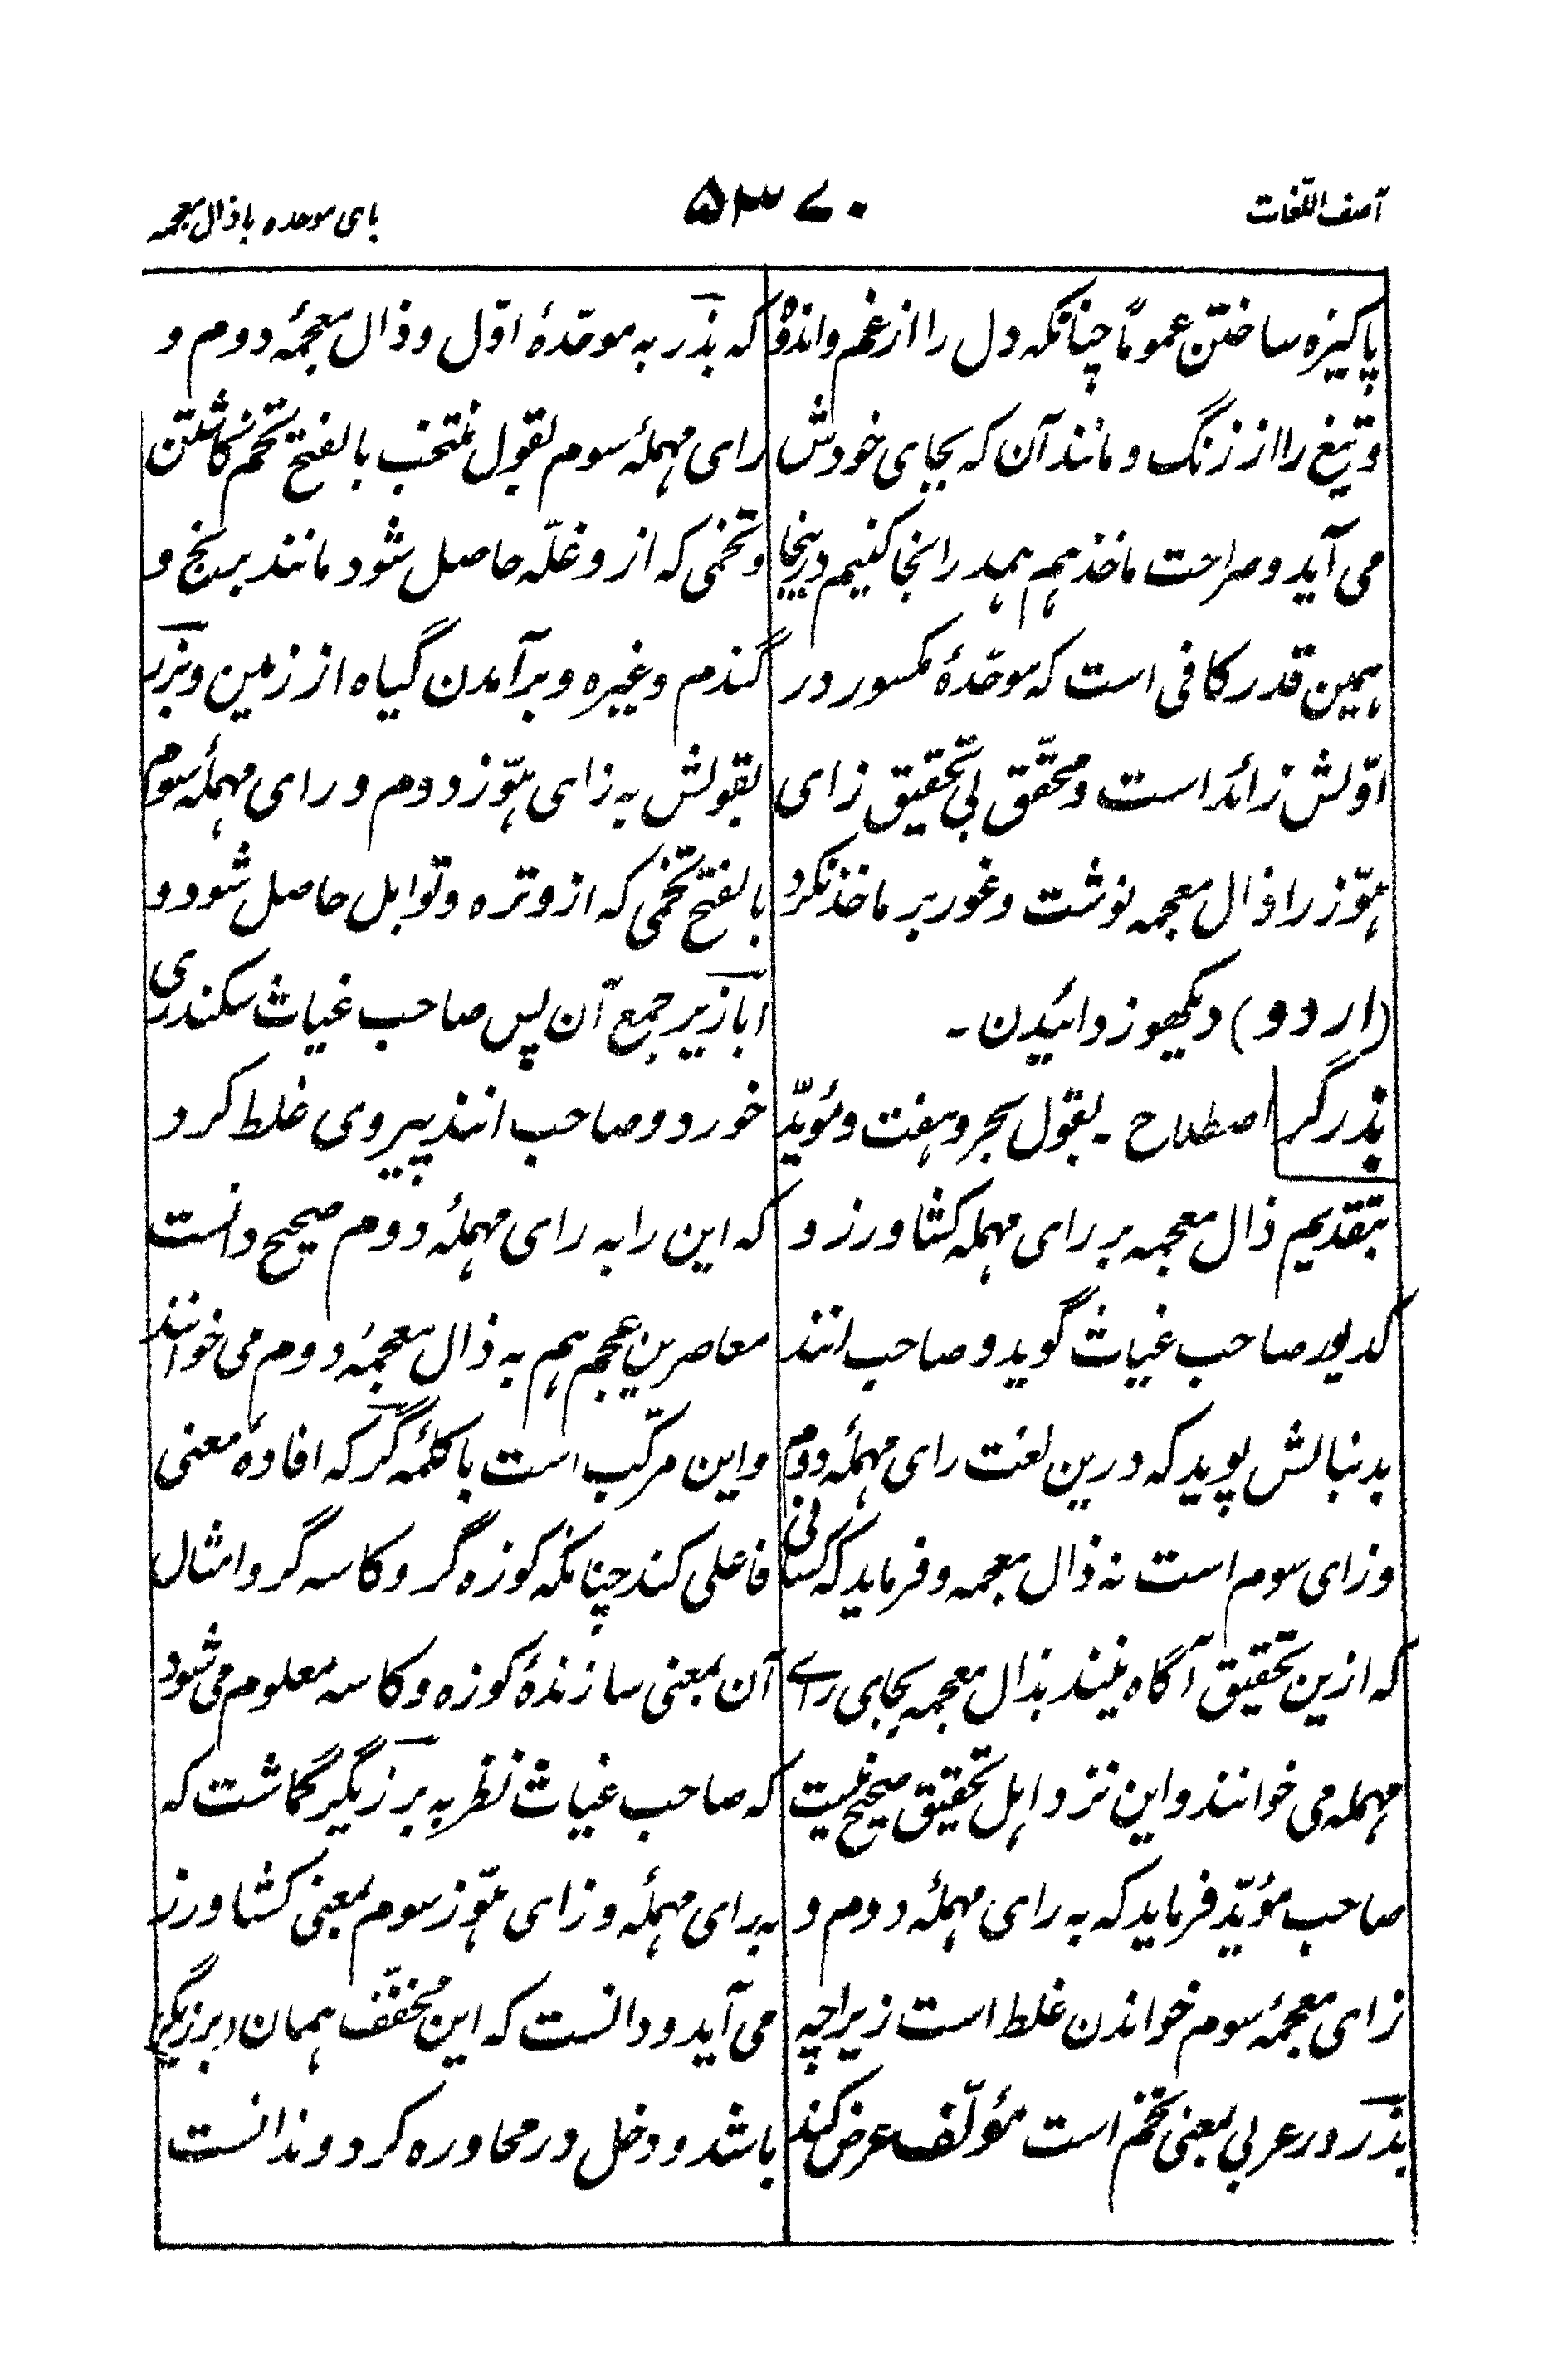 آصف اللّغات
۵۳۷۰
بای موحده با ذال معجمه
پاکیزه ساختن عموماً چنانکه دل را از غم و اندوه
و تیغ را از زنگ و مانند آن که بجای خودش
می آید و صراحت ماخذ هم همدرانجا کنیم درینجا
همین قدر کافی است که موحّدهٔ مکسور در
اوّلش زائد است و محقّق بی تحقیق زای
هوّز را ذال معجمه نوشت و غور بر ماخذ نکرد
(اردو) دیکھو زدائیدن ۔
بذرگر اصطلاح ۔ بقول بحر و هفت و مؤیّد
بتقدیم ذال معجمه بر رای مهمله کشاورز و
کدیور صاحب غیاث گوید و صاحب انند
بدنبالش پوید که درین لغت رای مهملهٔ دوم
و زای سوم است نه ذال معجمه و فرماید که کسانی
که ازین تحقیق آگاه نیند بذال معجمه بجای رای
مهمله می خوانند و این نزد اهل تحقیق صحیح نیست
صاحب مؤیّد فرماید که به رای مهملهٔ دوم و
زای معجمهٔ سوم خواندن غلط است زیراچه
بذر در عربی بمعنی تخم است مؤلّف عرض کند
که بذر به موحّدهٔ اوّل و ذال معجمهٔ دوم و
رای مهملهٔ سوم بقول منتخب بالفتح تخم کاشتن
و تخمی که ازو غلّه حاصل شود مانند برنج و
گندم و غیره و برآمدن گیاه از زمین و بزر
بقولش به زای هوّز دوم و رای مهملهٔ سوم
بالفتح تخمی که ازو تره و توابل حاصل شود و
ابازیر جمع آن پس صاحب غیاث سکندری
خورد و صاحب انند پیروی غلط کرد
که این را به رای مهملهٔ دوم صحیح دانست
معاصرین عجم هم به ذال معجمهٔ دوم می خوانند
و این مرکّب است با کلمهٔ گر که افادهٔ معنی
فاعلی کند چنانکه کوزه گر و کاسه گر و امثال
آن بمعنی سازندهٔ کوزه و کاسه معلوم می شود
که صاحب غیاث نظر به برزیگر گماشت که
به رای مهملهٔ و زای هوّز سوم بمعنی کشاورز
می آید و دانست که این مخفّف همان (برزیگر)
باشد و دخل در محاوره کرد و ندانست